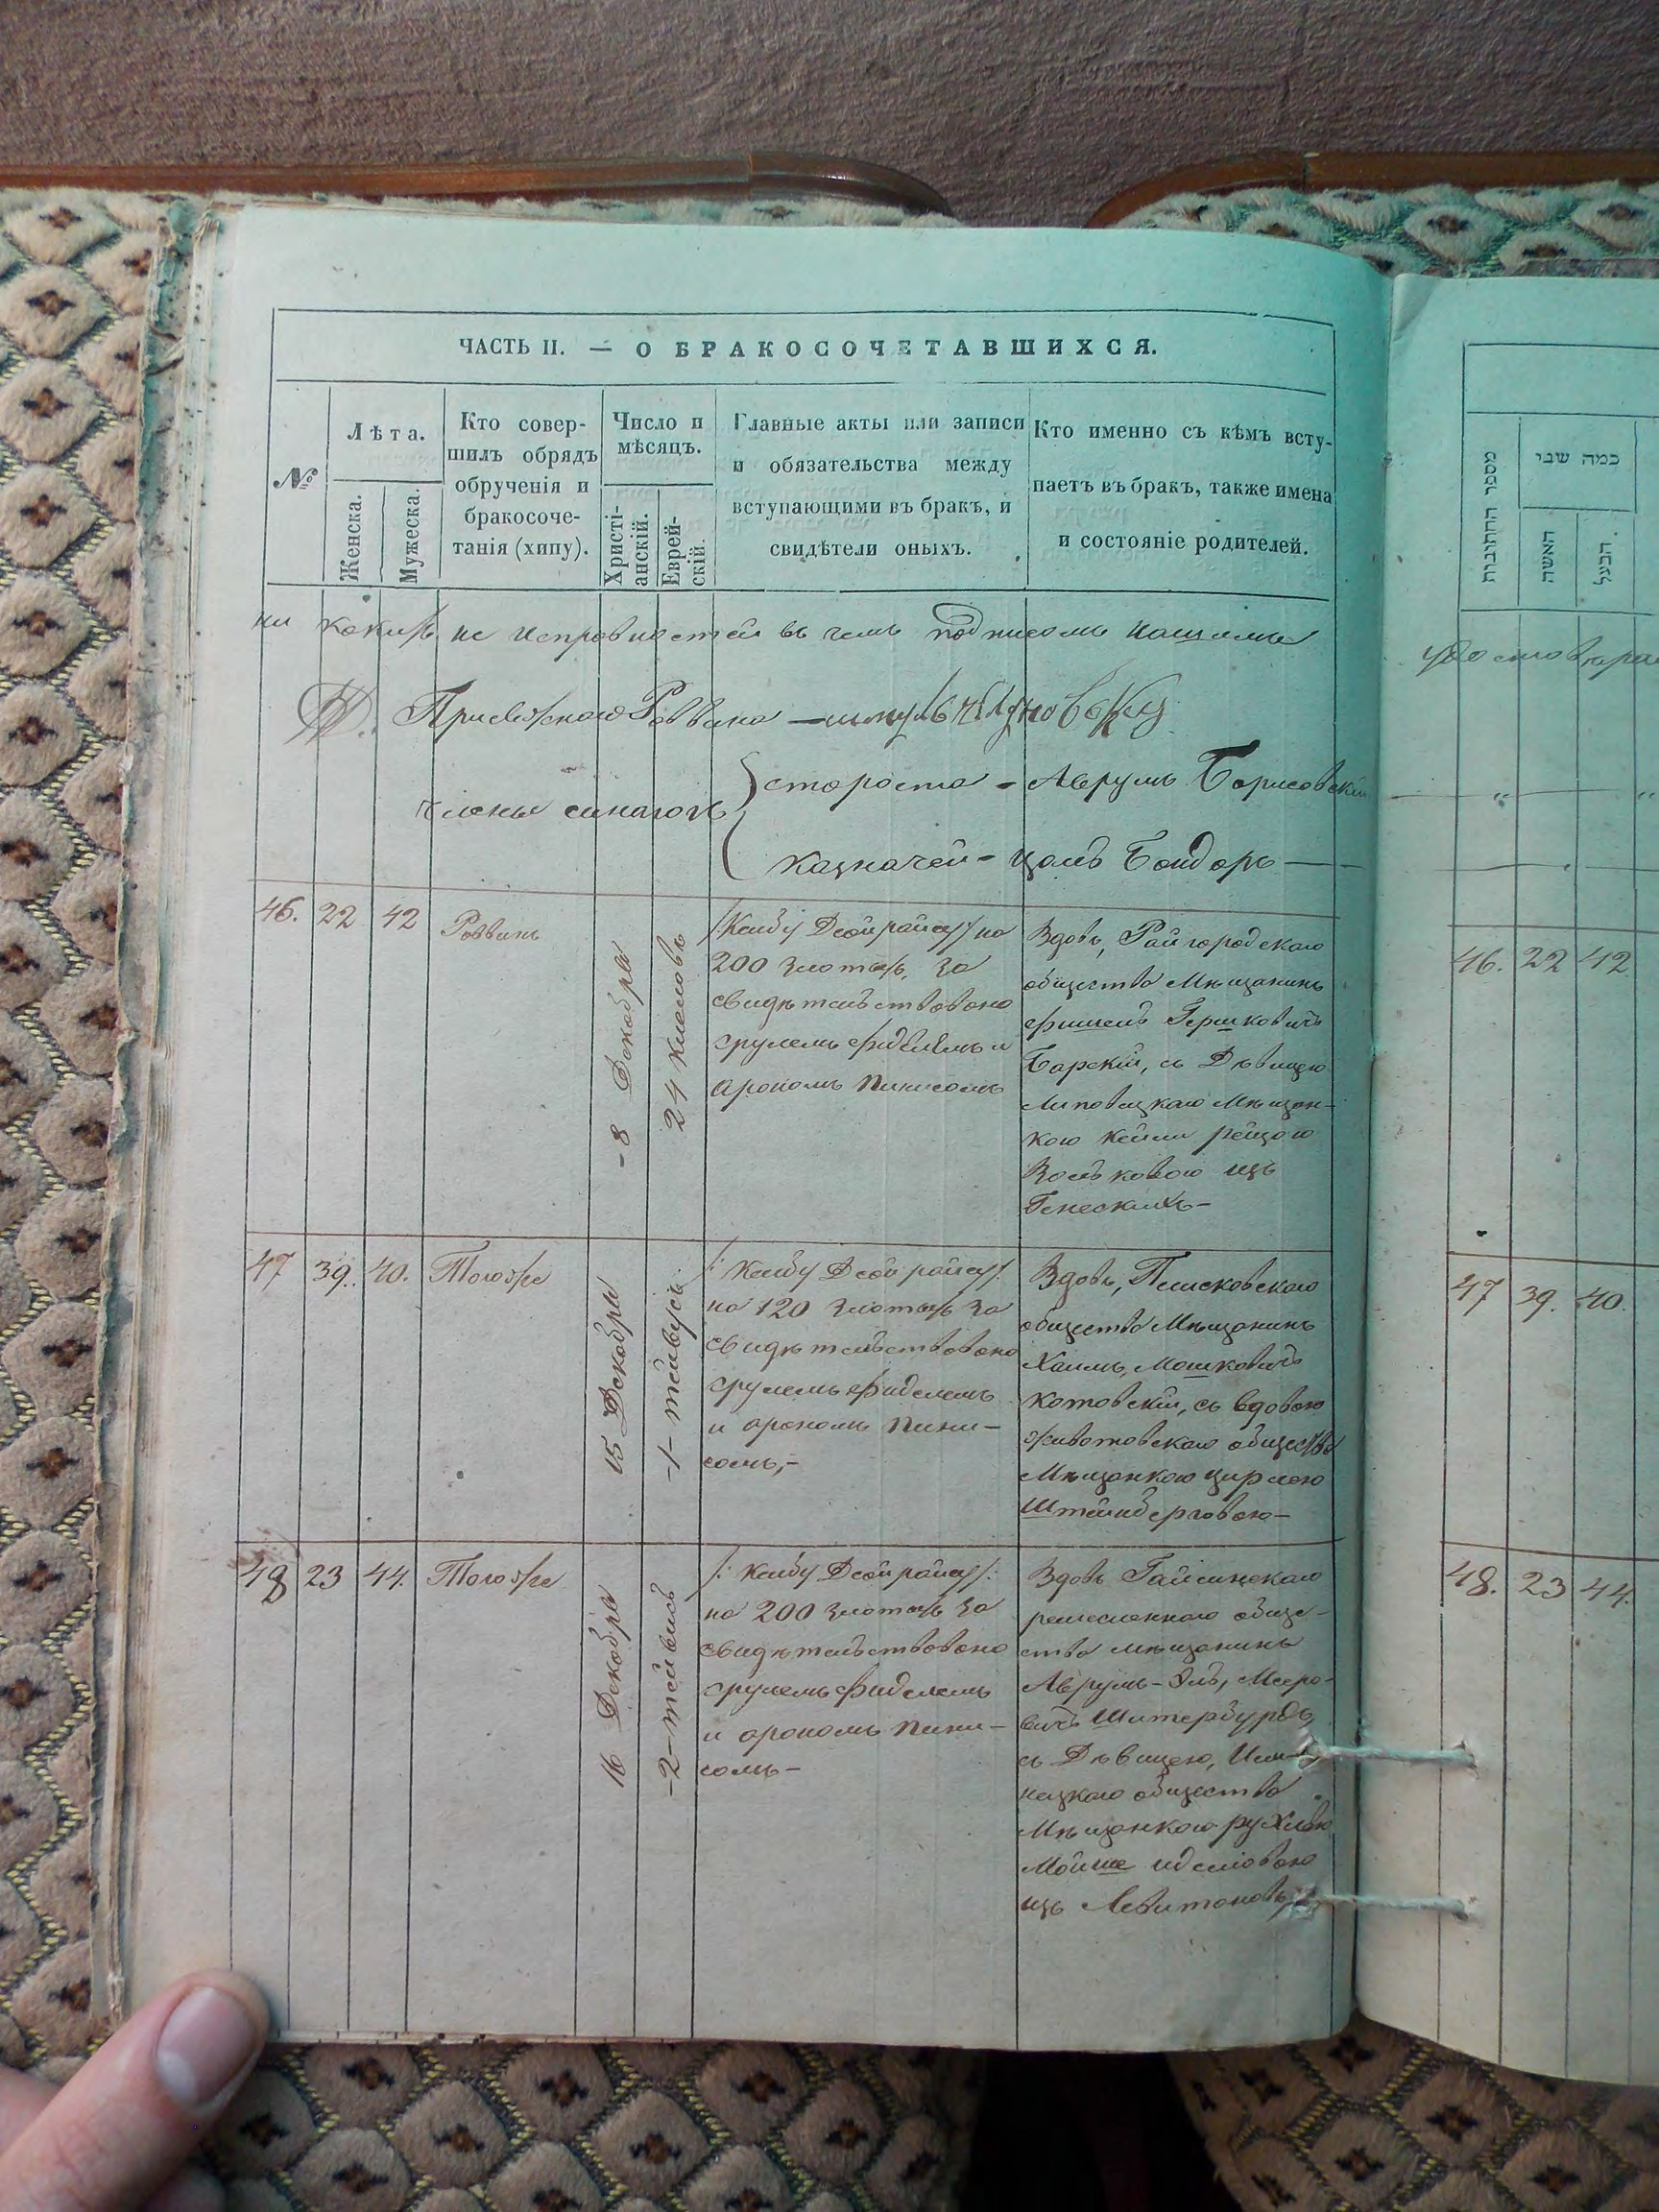 ЧАСТЬ II. — О БРАКОСОЧЕТАВШИХСЯ.
№
Лѣта.
Женска.
Мужеска.
Кто совер-
шилъ обрядъ
обрученія и
бракосоче-
танія (хипу).
Число и
мѣсяцъ.
Христі-
анскій.
Еврей-
скій.
Главные акты или записи
и обязательства между
вступающими въ бракъ, и
свидѣтели оныхъ.
Кто именно съ кѣмъ всту-
паетъ въ бракъ, также имена
и состояніе родителей.
ни какихъ не исправностей въ чемъ подписомъ нашимъ
Раввина
члены синагогъ
староста - Аврумъ Борисовскій
казначей -
46. 22 42 Раввинъ
- 8 Декабря
24 кислевъ
на
200 злотыхъ, за
свидѣтельствовано
срулемъ фиделемъ и
арономъ пинисомъ
Вдовъ, Райгородскаго
общества Мѣщанинъ
фишель Гершковичъ
Барскій, съ Дѣвицею
Липовецкаго Мѣщан-
кою
Вольковою изъ
47 39. 40. Тогоже
15 Декабря
-1-
на 120 злотыхъ за
свидѣтельствовано
срулемъ фиделемъ
и арономъ пини-
сомъ,-
Вдовъ,
общества Мѣщанинъ
Хаимъ, Мошковичъ
Котовскій, съ вдовою
животовскаго общества
Мѣщанкою цирлею
Штейнберговою-
48 23 44. Тогоже
16 Декабря
-2-
на 200 злотыхъ за
свидѣтельствовано
срулемъ фиделемъ
и арономъ пини-
сомъ-
Вдовъ Гайсинскаго
ремесленнаго обще-
ства мѣщанинъ
Аврумъ-Эль, Мееро-
вичъ
съ Дѣвицею, Иль-
нецкаго общества
Мѣщанкою рухлею
Мойше
изъ
מספר החתונות
כמה שני
האשה
הבעל
46. 22 42
47 39. 40.
48. 23 44.